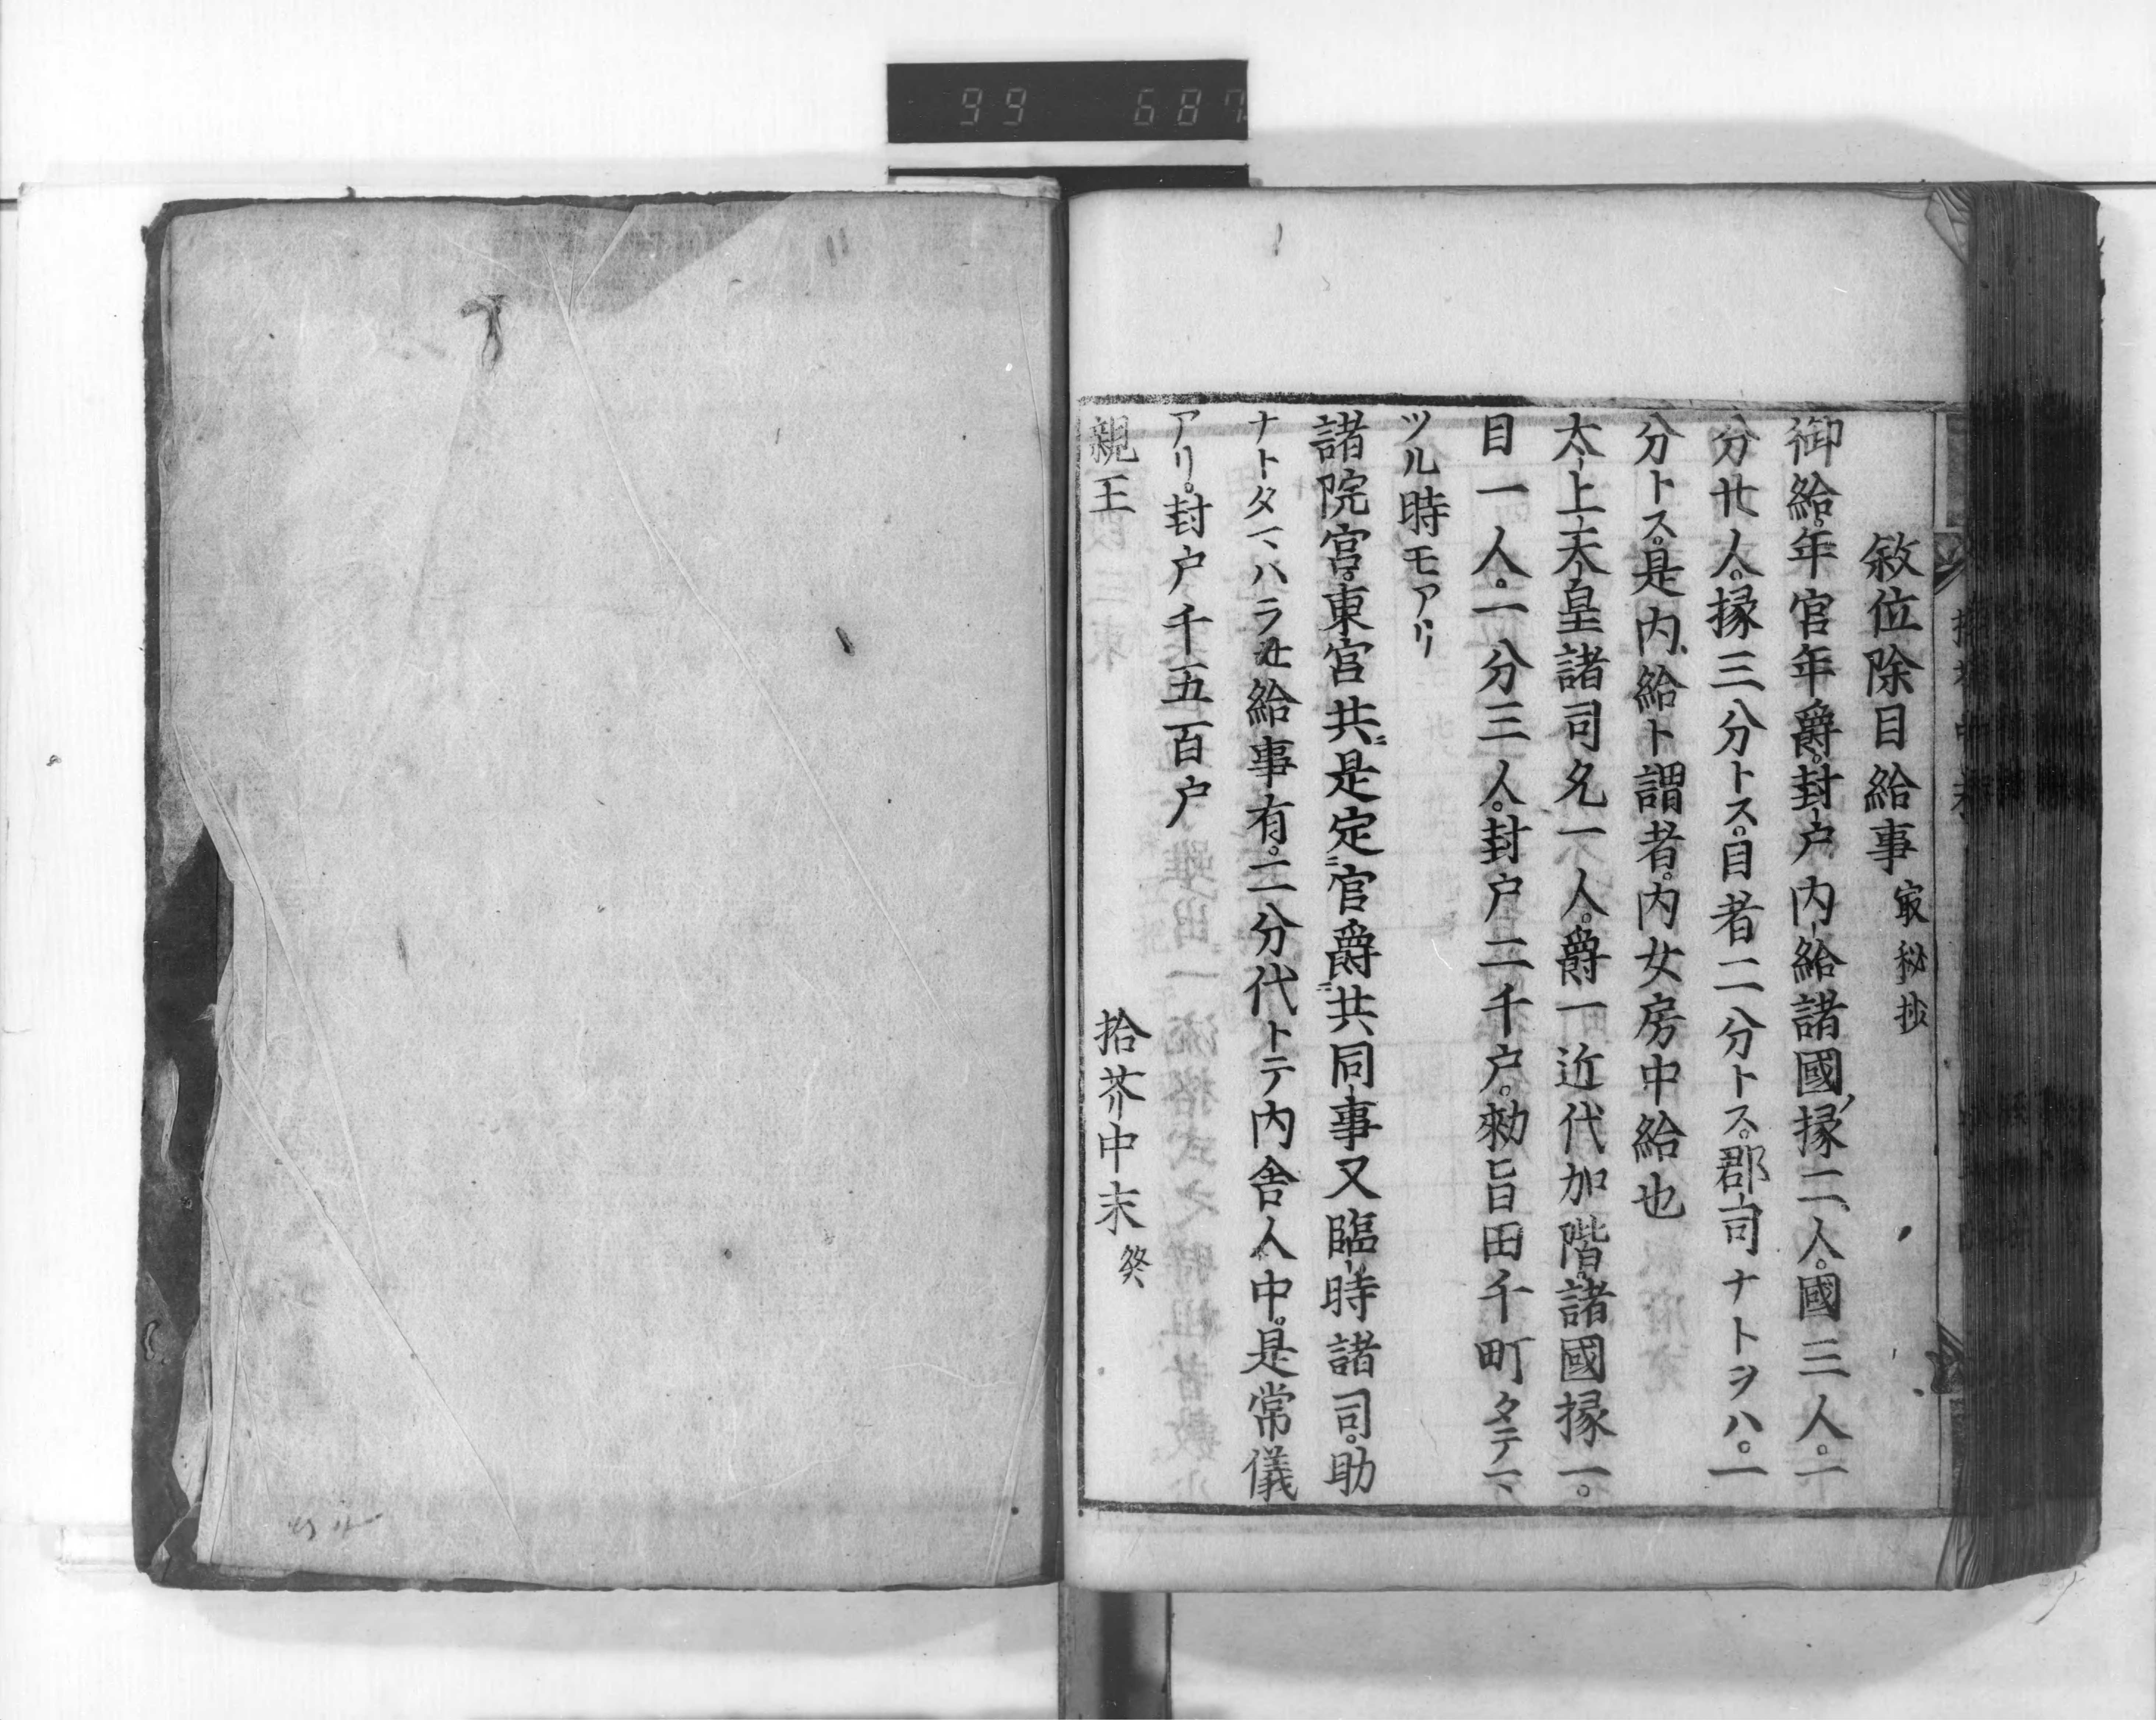 99 687
敘位除目給事 㝡秘抄
御給。年官年爵。封戸内給諸國ノ掾二人。國三人。一
分廿人。掾三分トス。目者二分トス。郡司ナトヲハ。一
分トス。是内給ト謂者。内女房中給也
太上天皇諸司允一人。爵一近代加階。諸國掾一。
目一人。一分三人。封戸二千戸。勅旨田千町タテマ
ツル時モアリ
諸院宮。東宮共ニ是定ニ官爵ニ共同事又臨時諸司。助
ナトタマハラせ給事有。二分代トテ内舎人中。是常儀
アリ。封戸千五百戸
親王
拾芥中末 終